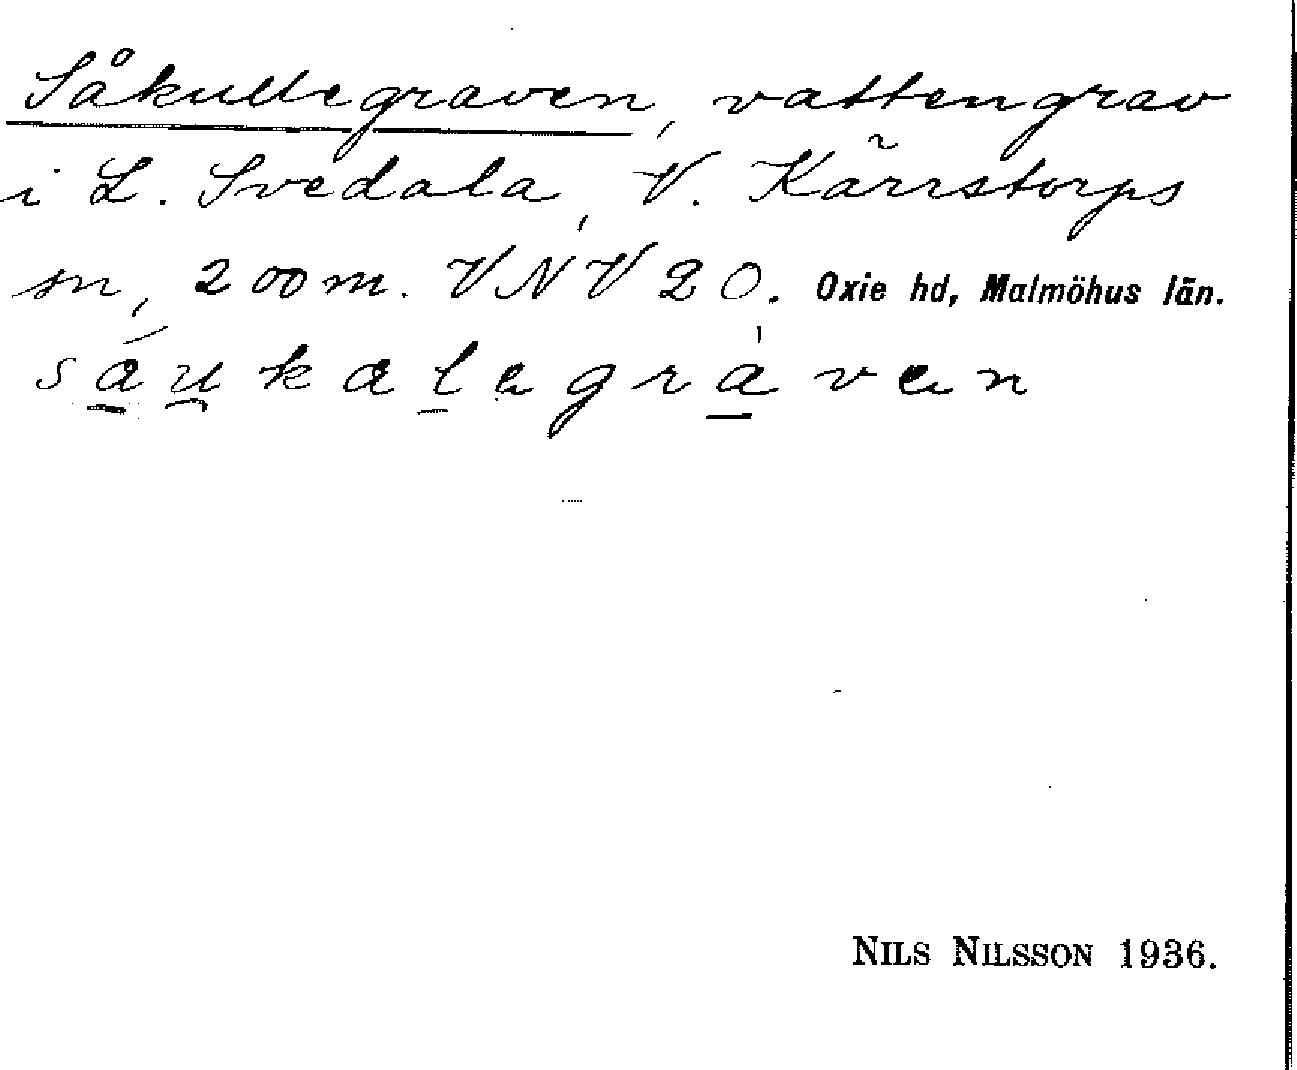 Såkullegraven, vattengrav
i L. Svedala, V. Kärrstorps
sn, 200 m. VNV 20. Oxie hd, Malmöhus län.
sáukalegràven
NILS NILSSON 1936.